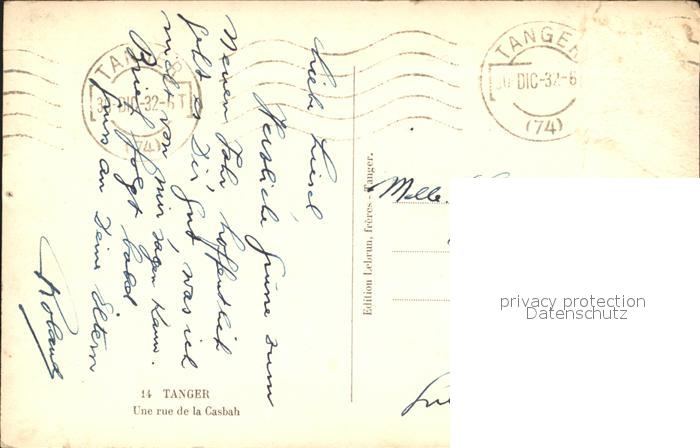 Liebe Liesel
Herzliche Grüsse zum
Neuen Jahr hoffentlich
geht es Dir gut was ich
nicht von mir sagen kann.
Brief folgt bald
Gruss an Deine Eltern
Roland
TANGER
30 DIC-32-6T
(74)
TANGER
30 DIC-32-6
(74)
Edition Lebrun, frères - Tanger.
Melle.
privacy protection
Datenschutz
14 TANGER
Une rue de la Casbah